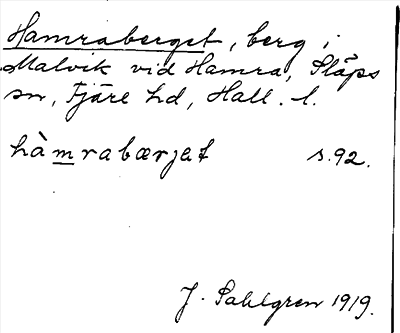 Hamraberget, berg i
Malvik vid Hamra, Släps
sn, Fjäre hd, Hall. l.
hàmrabærjet s. 92.
J. Sahlgren 1919.